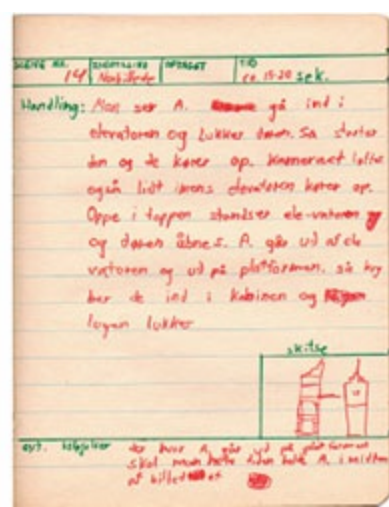 SCENE NR. 14 INDSTILLING Nærbillede OPTAGET TID ca. 15-20 sek.
Handling: Man ser A. gå ind i
elevatoren og lukker døren. Så starter
den og de kører op. Kameraet løfter
også lidt imens elevatoren kører op.
Oppe i toppen standser ele-vatoren
og døren åbnes. A. går ud af ele
vatoren og ud på platformen. så
ber de ind i kabinen og
lugen lukker
skitse
evt. tilføjelser der hvor A. går ud på platformen
skal man hele tiden holde A. i midten
af billedet